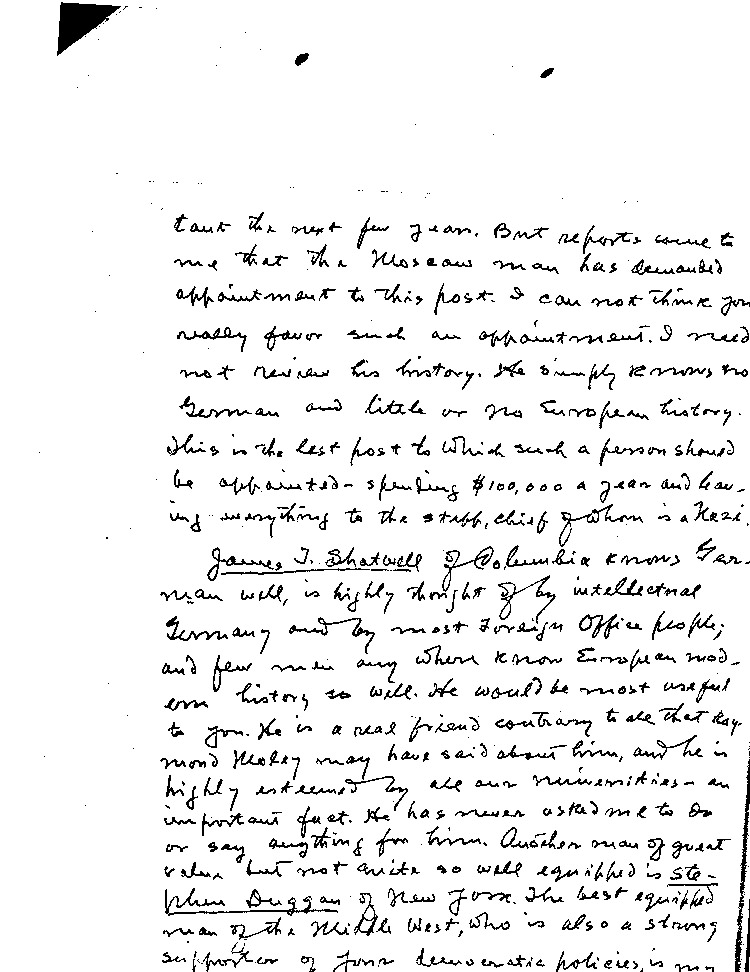 tant the next few years. But reports come to
me that the Moscow man has demanded
appointment to this post. I can not think you
really favor such an appointment. I need
not review his history. He simply knows no
German and little or no European history.
This is the last post to which such a person should
be appointed - spending $100,000 a year and leav-
ing everything to the staff, chief of whom is a Nazi.
James T. Shotwell of Columbia knows Ger-
man well, is highly thought of by intellectual
Germany and by most Foreign Office people;
and few men any where know European mod-
ern history so well. He would be most useful
to you. He is a real friend contrary to all that Ray-
mond Moley may have said about him, and he is
highly esteemed by all our universities - an
important fact. He has never asked me to do
or say anything for him. Another man of great
value but not quite so well equipped is Ste-
phen Duggan of New York. The best equipped
man of the Middle West, who is also a strong
supporter of your democratic policies, is my